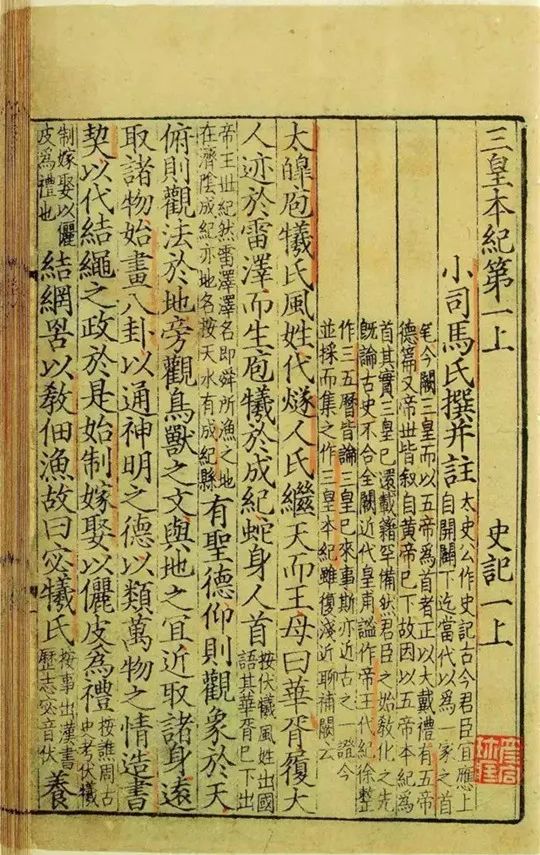 三皇本紀第一上 史記一上
小司馬氏撰并註
太史公作史記古今君臣冝應上
自開闢下迄當代以為一家之首
今闕三皇而以五帝為首者正以大戴禮有五帝
德篇又帝世皆叙自黄帝已下故因以五帝本紀為
首其實三皇已還載籍罕備然君臣之始敎化之先
既論古史不合全闕近代皇甫謐作帝王代紀徐整
作三五曆皆論三皇已來事斯亦近古之一證今
並採而集之作三皇本紀雖復淺近聊補闕云
太皥庖犧氏風姓代燧人氏繼天而王母曰華胥履大
人迹於雷澤而生庖犧於成紀蛇身人首
按伏犧風姓出國
語其華胥已下出
帝王世紀然雷澤澤名即舜所漁之地
在濟陰成紀亦地名按天水有成紀縣
有聖德仰則觀象於天
俯則觀法於地旁觀鳥獸之文與地之冝近取諸身遠
取諸物始畫八卦以通神明之德以類萬物之情造書
契以代結繩之政於是始制嫁娶以儷皮為禮
按譙周古
史考伏犧
制嫁娶以儷
皮為禮也
結網罟以敎佃漁故曰宓犧氏
按事出漢書
歷志宓音伏
養